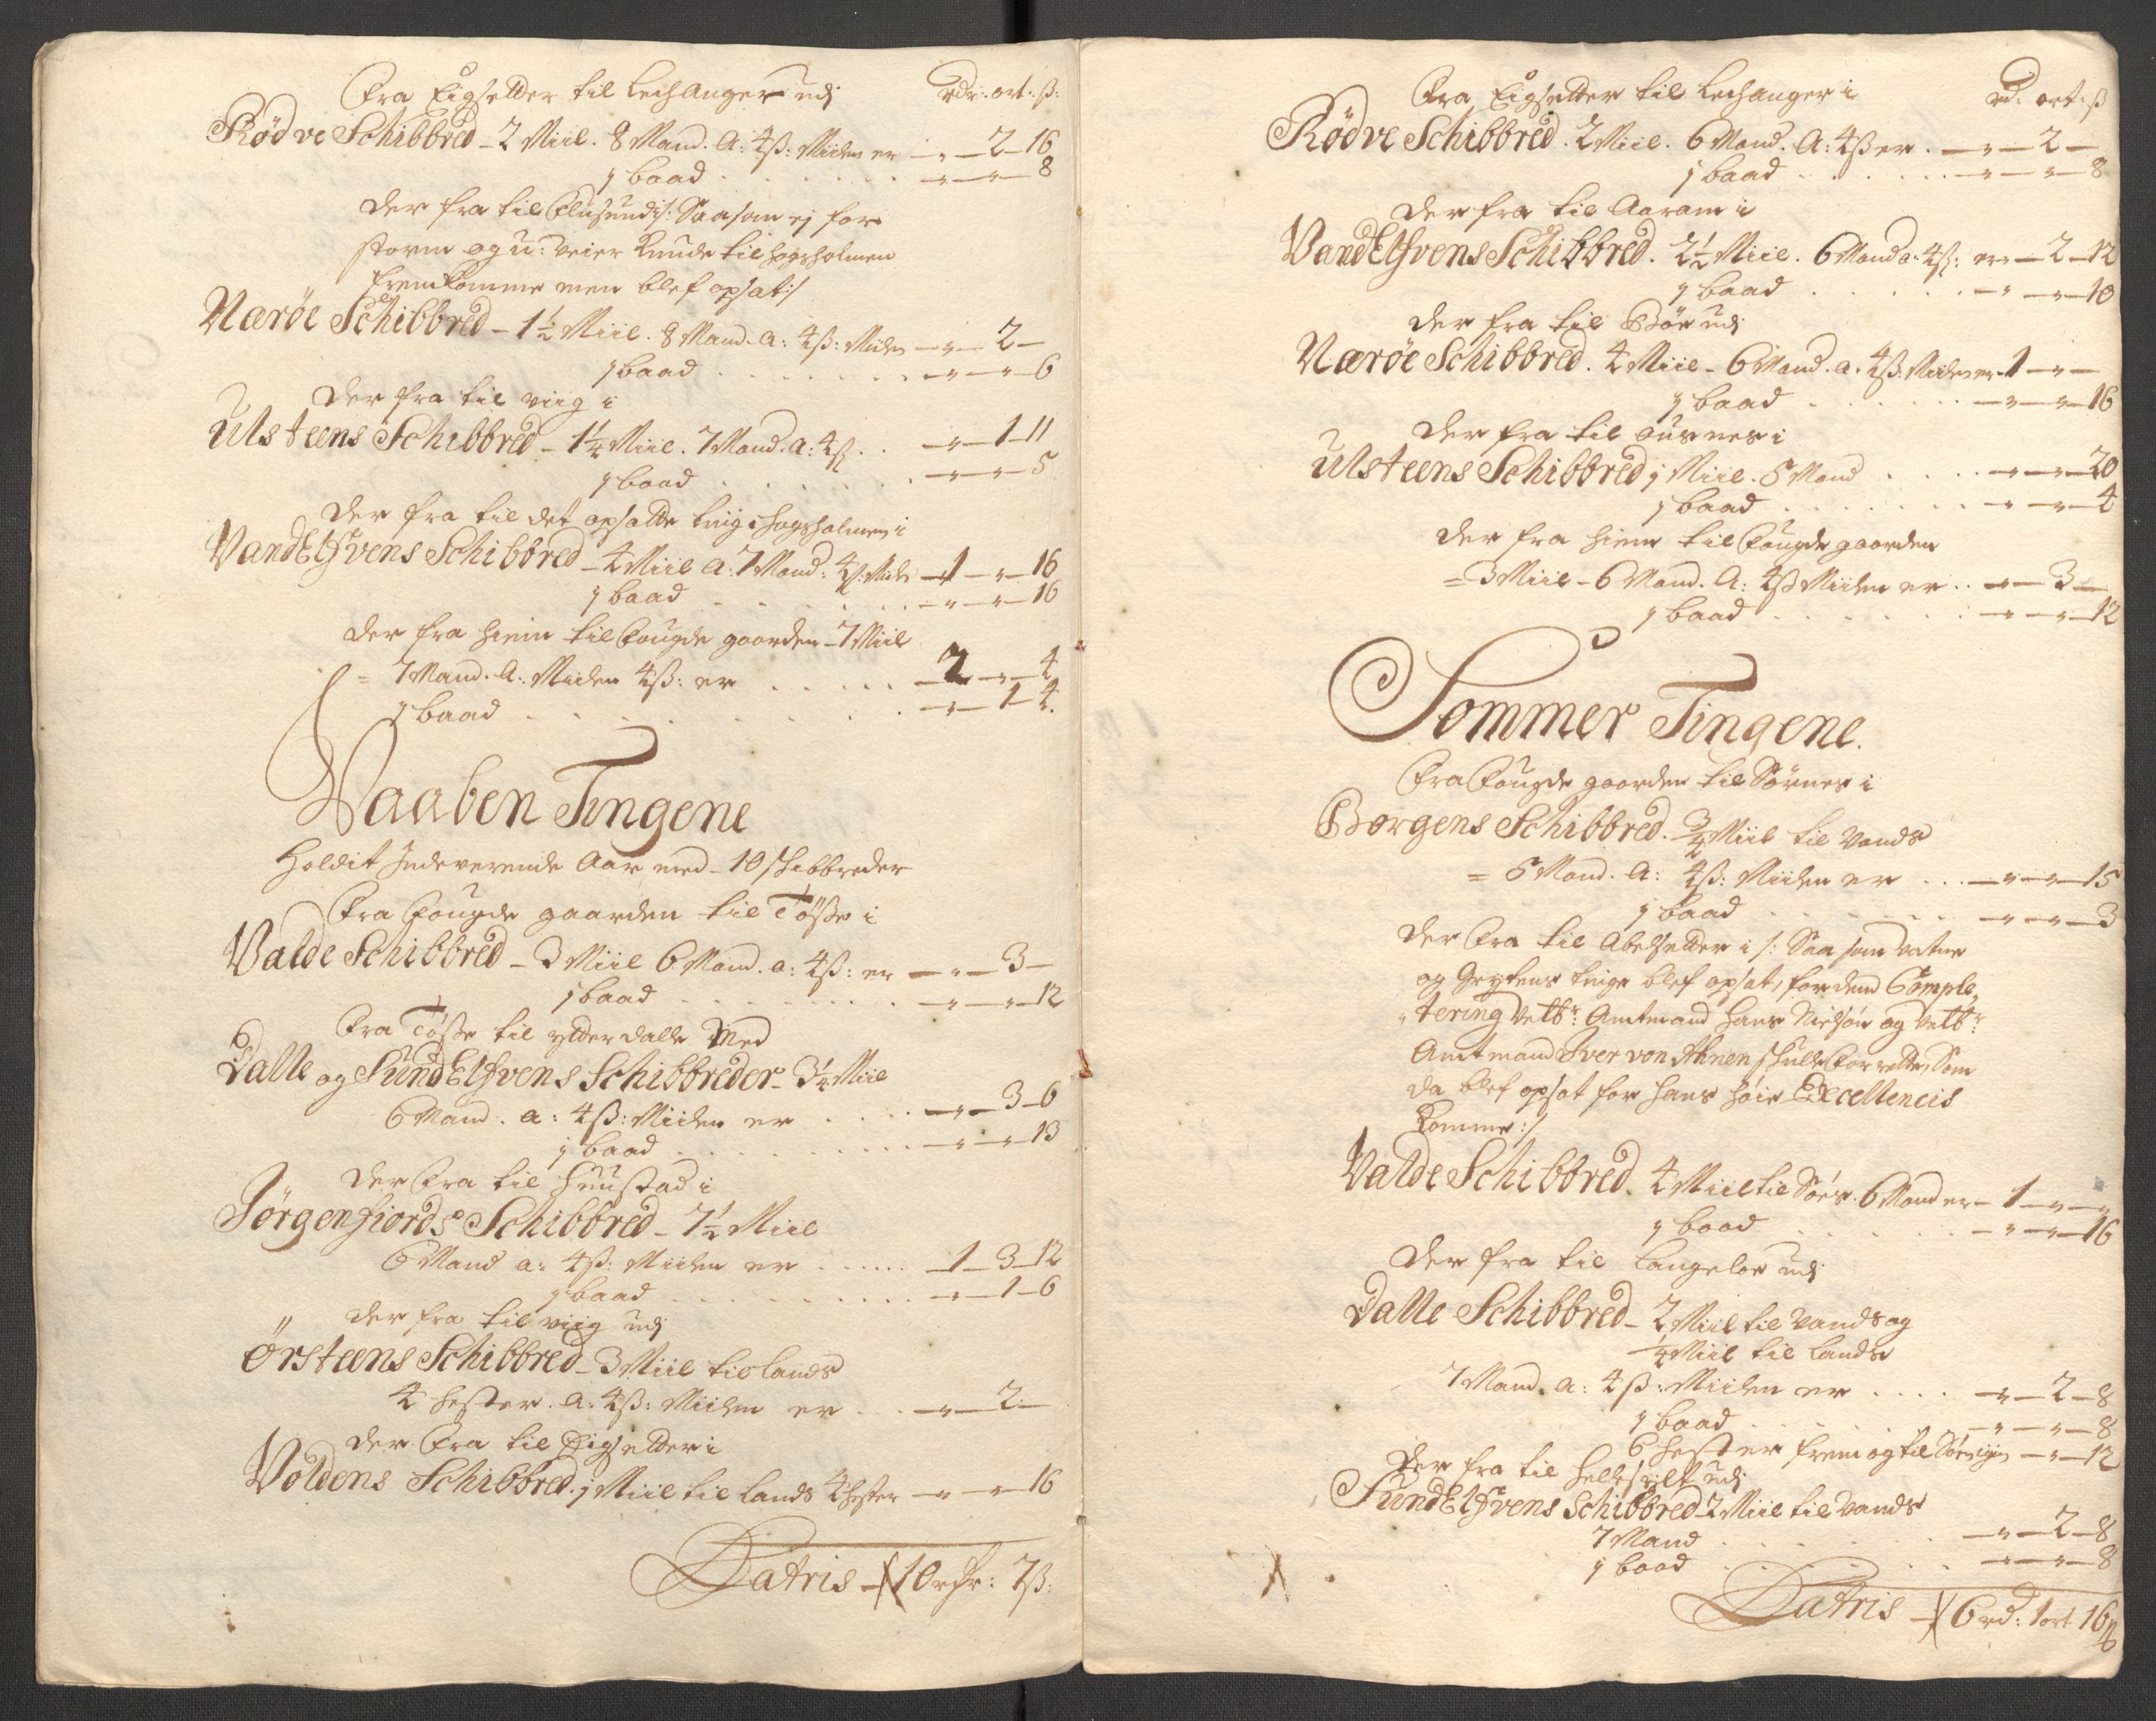 Fra Eigsetter til Leichanger udj rdr: ort: ß:
Rødve Schibbred - 2 Miil. 8 Mand. A: 4ß: Miilen er - „ - 2 - 16
1 baad . . . . . . . - „ - „ - 8
Der fra til Flusundj /: Saasom ej for
storm og u: veier kunde til Hogsholmen
fremkomme men blef opsat :/
Nærøe Schibbred - 1½ Miil. 8 Mand. A: 4ß: Miilen - „ - 2 -
1 baad . . . . . . . - „ - „ - 6
Der fra til Viig i
Ulsteens Schibbred - 1¼ Miil. 7 Mand. A: 4ß . . - „ - 1 - 11
1 baad . . . . . . . - „ - „ - 5
Der fra til det opsatte ting i Hogsholmen i
VandElfvens Schibbred - 4 Miil A: 7 Mand: 4ß: Miilen - 1 - „ - 16
1 baad . . . . . . . - „ - „ - 16
Der fra hiem til Fougde gaarden - 7 Miil
= 7 Mand. A: Miilen 4ß: er . . . . . - 2 - „ - 4
1 baad . . . . . . . . . - „ - 1 - 4.
Waaben Tingene
Holdit Indeverende Aar med - 10 Schibbreder
Fra Fougde gaarden til Tøsse i
Valde Schibbred - 3 Miil 6 Mand. a: 4ß: er - „ - 3 -
1 baad . . . . . . . . - „ - „ - 12
Fra Tøsse til ytterdalle Med
Dalle og SundElfvens Schibbreder - 3¼ Miil
6 Mand. a: 4ß: Miilen er . . . . - „ - 3 - 6
1 baad . . . . . . . . . - „ - „ - 13
Der Fra til Huustad i
Jørgenfiords Schibbred - 7½ Miil
6 Mand a: 4ß: Miilen er . . . . . . - 1 - 3 - 12
1 baad . . . . . . . . . - „ - 1 - 6
Der fra til Viig udj
Ørsteens Schibbred - 3 Miil til lands
4 Hester. A: 4ß: Miilen er . . . - „ - 2 -
Der Fra til Eigsetter i
Voldens Schibbred. 1 Miil til lands 4 Hester - „ - „ - 16
Latris - 10 rdr: 7ß:
Fra Eigsetter til Leichanger i rd. ort: ß
Rødve Schibbred. 2 Miil. 6 Mand. A: 4ß er . - „ - 2 -
1 baad . . . . . . - „ - „ - 8
Der fra til Aaram i
VandElfvens Schibbred. 2½ Miil. 6 Mand a. 4ß: er - „ - 2 - 12
1 baad . . . . . . - „ - „ - 10
Der fra til Bøe udj
Nærøe Schibbred. 4 Miil - 6 Mand. a. 4ß Miilen er - 1 - „ -
1 baad . . . . . . - „ - „ - 16
Der fra til Ousnes i
Ulsteens Schibbred 1 Miil. 5 Mand . . . - „ - „ - 20
1 baad . . . . . . - „ - „ - 4
Der fra hiem til Fougde gaarden
= 3 Miil - 6 Mand. A: 4ß Miilen er . . - „ - 3 -
1 baad . . . . . . . - „ - „ - 12
Sommer Tingene.
Fra Fougde gaarden til Sørnes i
Borgens Schibbred. ¾ Miil til Vands
= 5 Mand. A: 4ß: Miilen er . . . - „ - „ - 15
1 baad . . . . . . . - „ - „ - 3
Der Fra til Abelsetter i /: Saasom Vatne
og Grytens tinge blef opsat, for dend Comple,
„tering Velb: Amtmand Hans Nielsøn og Velb:
Amtmand Iver von Ahnen skulle Forrette, Som
da blef opsat for Hans Høie Excellencis
komme :/
Valde Schibbred. 4 Miil til Søes. 6 Mand er - 1 - „ - „
1 baad . . . . . . - „ - „ - 16
Der fra til Langeloe udj
Dalle Schibbred - 2 Miil til Vands og
¼ Miil til Lands
7 Mand. a: 4ß: Miilen er . . . . - „ - 2 - 8
1 baad . . . . . . - „ - „ - 8
6 Hester frem og til - „ - 12
Der fra til Hellesylt udj
SundElfvens Schibbred - 2 Miil til Vands
7 Mand . . . . . . - „ - 2 - 8
1 baad . . . . . . - „ - „ - 8
Latris - 6 rd: 1 ort 16ß